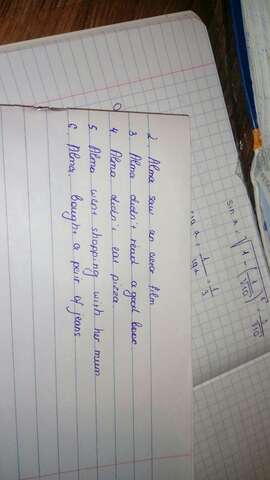 2. Alma saw an over film
3. Alma didn't read a good book
4. Alma didn't eat pizza
5. Alma went shopping with her mum
6. Alma. bough a pair of jeans
sin α = √1 - (1/√10)² = 3/√10
ctg α = 1/tg α = 1/3